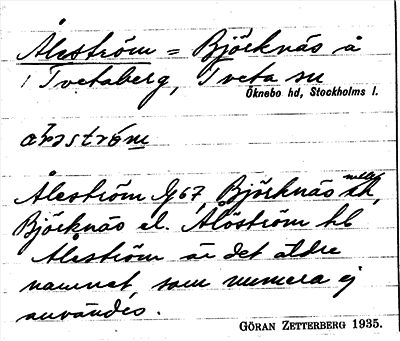 Åleström = Björknäs å
i Tvetaberg, Tveta sn
Öknebo hd, Stockholms l.
Åleström G 67, Björknäs
Björknäs el. Ålöström hl
Åleström är det äldre
namnet, som numera ej
användes.
GÖRAN ZETTERBERG 1935.